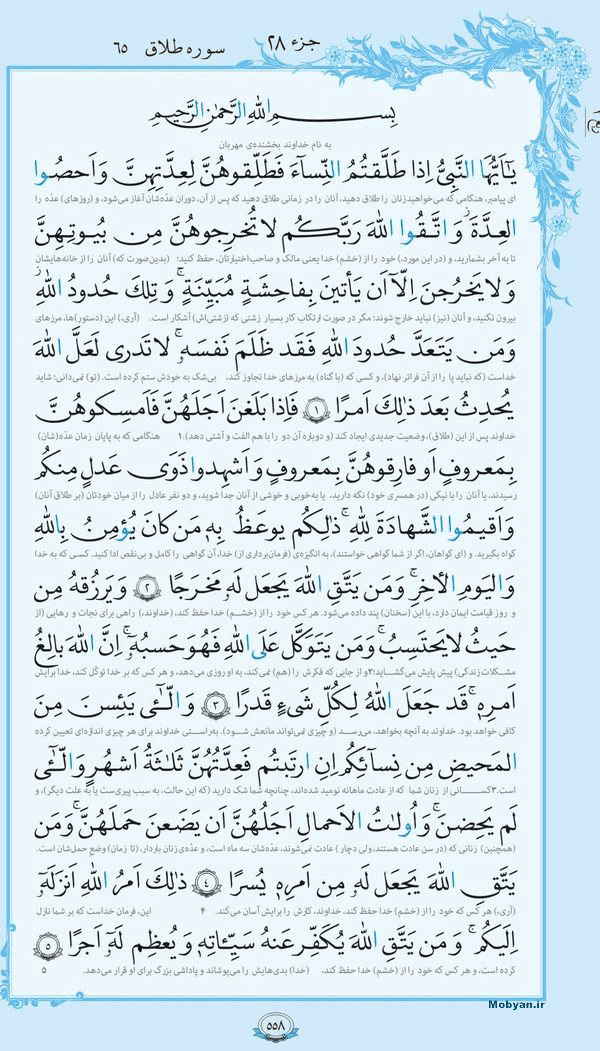 جزء ۲۸
سوره طلاق ۶۵
بِسمِ اللهِ الرَّحمٰنِ الرَّحیمِ
به نام خداوند بخشنده‌ی مهربان
یٰۤاَیُّهَا النَّبِیُّ اِذا طَلَّقتُمُ النِّسآءَ فَطَلِّقوهُنَّ لِعِدَّتِهِنَّ وَ اَحصُوا
ای پیامبر، هنگامی که می‌خواهید زنان را طلاق دهید، آنان را در زمانی طلاق دهید که پس از آن، دوران عدّه‌شان آغاز می‌شود، و (روزهای) عدّه را
العِدَّةَ وَ اتَّقُوا اللهَ رَبَّکُم لا تُخرِجوهُنَّ مِن بُیوتِهِنَّ
تا به آخر بشمارید، و (در این مورد)، خود را از (خشم) خدا یعنی مالک و صاحب‌اختیارتان، حفظ کنید؛ (بدین‌صورت که) آنان را از خانه‌هایشان
وَ لا یَخرُجنَ اِلّاۤ اَن یَأتینَ بِفاحِشَةٍ مُبَیِّنَةٍ وَ تِلکَ حُدودُ اللهِ
بیرون نکنید، و آنان (نیز) نباید خارج شوند؛ مگر در صورت ارتکاب کار بسیار زشتی که (زشتی‌اش) آشکار است. (آری)، این (دستور)ها، مرزهای
وَ مَن یَتَعَدَّ حُدودَ اللهِ فَقَد ظَلَمَ نَفسَهٗ لا تَدری لَعَلَّ اللهَ
خداست (که نباید پا را از آن فراتر نهاد)، و کسی که (با گناه) به مرزهای خدا تجاوز کند، بی‌شک به خودش ستم کرده است. (تو) نمی‌دانی؛ شاید
یُحدِثُ بَعدَ ذٰلِکَ اَمرًا ﴿۱﴾ فَاِذا بَلَغنَ اَجَلَهُنَّ فَاَمسِکوهُنَّ
خداوند پس از این (طلاق)، وضعیت جدیدی ایجاد کند (و دوباره آن دو را با هم الفت و آشتی دهد). ۱ هنگامی که به پایان زمان عدّه(شان)
بِمَعروفٍ اَو فارِقوهُنَّ بِمَعروفٍ وَ اَشهِدوا ذَوَی عَدلٍ مِنکُم
رسیدند، یا آنان را با نیکی (در همسری خود) نگه دارید، یا به‌خوبی و خوشی از آنان جدا شوید، و دو نفر عادل را از میان خودتان (بر طلاق آنان)
وَ اَقیمُوا الشَّهادَةَ لِلّٰهِ ذٰلِکُم یوعَظُ بِهٖ مَن کانَ یُؤمِنُ بِاللهِ
گواه بگیرید. و (ای گواهان، اگر از شما گواهی خواستند)، به انگیزه‌ی (فرمان‌برداری از) خدا، آن گواهی را کامل و بی‌نقص ادا کنید. کسی که به خدا
وَ الیَومِ الأٰخِرِ وَ مَن یَتَّقِ اللهَ یَجعَل لَهٗ مَخرَجًا ﴿۲﴾ وَ یَرزُقهُ مِن
و روز قیامت ایمان دارد، با این (سخنان) پند داده می‌شود. هر کس خود را از (خشم) خدا حفظ کند، (خداوند)، راهی برای نجات و رهایی (از
حَیثُ لا یَحتَسِبُ وَ مَن یَتَوَکَّل عَلَی اللهِ فَهُوَ حَسبُهٗ اِنَّ اللهَ بالِغُ
مشکلات زندگی) پیش پایش می‌گشاید؛ ۲ و از جایی که فکرش را (هم) نمی‌کند، به او روزی می‌دهد، و هر کس که بر خدا توکّل کند، خدا برایش
اَمرِهٖ قَد جَعَلَ اللهُ لِکُلِّ شَیءٍ قَدرًا ﴿۳﴾ وَ الّٰٓـئی یَئِسنَ مِنَ
کافی خواهد بود. خداوند به آنچه بخواهد، می‌رسد (و چیزی نمی‌تواند مانعش شود). به‌راستی خداوند برای هر چیزی اندازه‌ای تعیین کرده
المَحیضِ مِن نِسآئِکُم اِنِ ارتَبتُم فَعِدَّتُهُنَّ ثَلاثَةُ اَشهُرٍ وَ الّٰٓـئی
است. ۳ کسانی از زنان شما که از عادت ماهانه نومید شده‌اند، چنانچه شما شک دارید (که این حالت، به سبب پیری‌ست یا به علت دیگر)، و
لَم یَحِضنَ وَ اُولاتُ الاَحمالِ اَجَلُهُنَّ اَن یَضَعنَ حَملَهُنَّ وَ مَن
(همچنین) زنانی که (در سن عادت هستند، ولی دچار) عادت نمی‌شوند، عدّه‌شان سه ماه است، و عدّه‌ی زنان باردار، (تا زمان) وضع حملشان است.
یَتَّقِ اللهَ یَجعَل لَهٗ مِن اَمرِهٖ یُسرًا ﴿۴﴾ ذٰلِکَ اَمرُ اللهِ اَنزَلَهٗۤ
(آری)، هر کس که خود را از (خشم) خدا حفظ کند، خداوند، کارش را برایش آسان می‌کند. ۴ این، فرمان خداست که بر شما نازل
اِلَیکُم وَ مَن یَتَّقِ اللهَ یُکَفِّر عَنهُ سَیِّـٔاتِهٖ وَ یُعظِم لَهٗۤ اَجرًا ﴿۵﴾
کرده است، و هر کس که خود را از (خشم) خدا حفظ کند، (خدا) بدی‌هایش را می‌پوشاند و پاداشی بزرگ برای او قرار می‌دهد. ۵
Mobyan.ir
۵۵۸